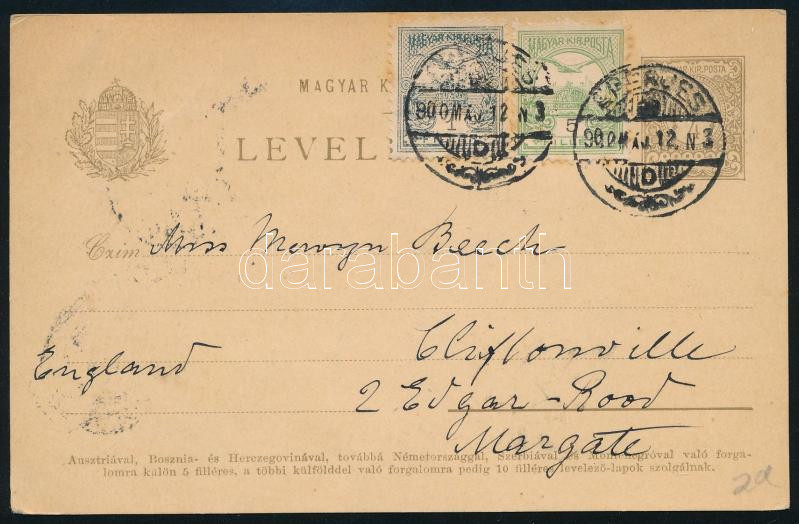 MAGYAR KIR. POSTA
MAGYAR KIR. POSTA
MAGYAR KIR. POSTA
MAGYAR K
LEVEL
1
5
EPERJES
900 MÁJ. 12. N 3
900 MÁJ. 12. N 3
D
D
Czim Miss Merwyn Beech
darabanth
Cliftonville
England
2 Edgar-Rood
Margate
Ausztriával, Bosznia- és Herczegovinával, továbbá Németországgal, Szerbiával és Montenegróval való forga-
lomra külön 5 filléres, a többi külfölddel való forgalomra pedig 10 filléres levelező-lapok szolgálnak.